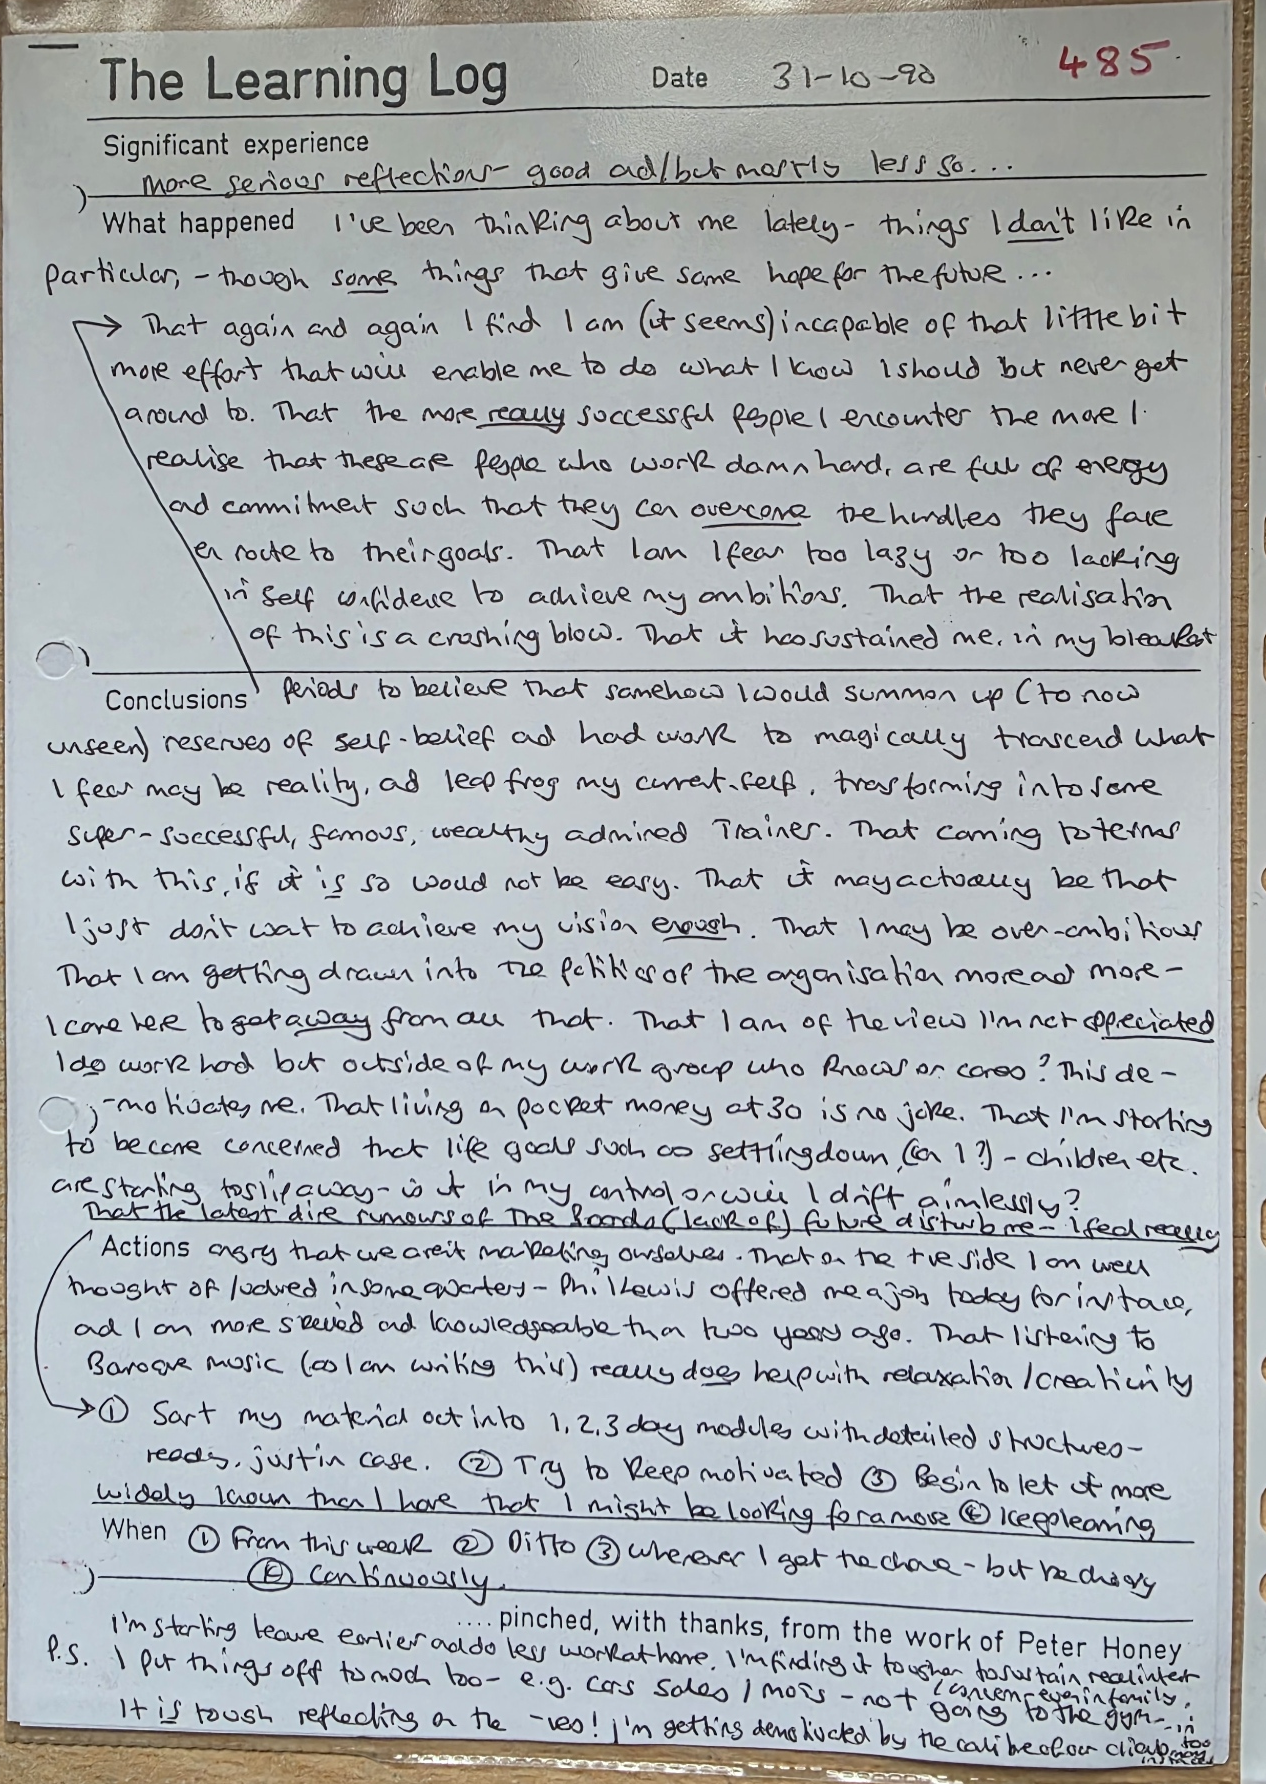 The Learning Log Date 31-10-90 485
Significant experience
More serious reflections - good ad/but mostly less so...
What happened I've been thinking about me lately - things I don't like in
particular, - though some things that give some hope for the future...
→ That again and again I find I am (it seems) incapable of that little bit
more effort that will enable me to do what I know I should but never get
around to. That the more really successful people I encounter the more I
realise that these are people who work damn hard, are full of energy
ad commitment such that they can overcome the hurdles they face
en route to their goals. That I am I fear too lazy or too lacking
in self confidence to achieve my ambitions. That the realisation
of this is a crashing blow. That it has sustained me, in my bleakest
Conclusions periods to believe that somehow I would summon up (to now
unseen) reserves of self-belief ad hard work to magically trascend what
I fear may be reality, ad leap frog my current-self, trasforming into some
super-successful, famous, wealthy admired Trainer. That coming to terms
with this, if it is so would not be easy. That it may actually be that
I just don't wat to achieve my vision enough. That I may be over-ambitious
That I am getting drawn into the politics of the organisation more ad more -
I came here to get away from all that. That I am of the view I'm not appreciated
I do work hard but outside of my work group who knows or cares? This de-
-motivates me. That living on pocket money at 30 is no joke. That I'm starting
to become concerned that life goals such as settling down, (can I?) - children etc.
are starting to slip away - is it in my control or will I drift aimlessly?
That the latest dire rumours of The Boards (lack of) future disturb me - I feel really
Actions angry that we aren't marketing ourselves. That on the +ve side I am well
thought of / valued in some quarters - Phil Lewis offered me a job today for instace,
ad I am more skilled and knowledgeable than two years ago. That listening to
Baroque music (as I am writing this) really does help with relaxation / creativity
→ ① Sort my material out into 1, 2, 3 day modules with detailed structures -
ready, just in case. ② Try to keep motivated ③ Begin to let it more
widely known than I have that I might be looking for a move ④ Keep learning
When ① From this week ② Ditto ③ Wherever I get the chance - but be choosy
④ Continuously.
....pinched, with thanks, from the work of Peter Honey
I'm starting leave earlier ad do less work at home. I'm finding it tougher to sustain real interest
/ concern - even in family.
P.S. I put things off to much too - e.g. cars sales / mots - not going to the gym -
It is tough reflecting on the -ves! I'm getting demotivated by the calibre of our clients in
too many
instances